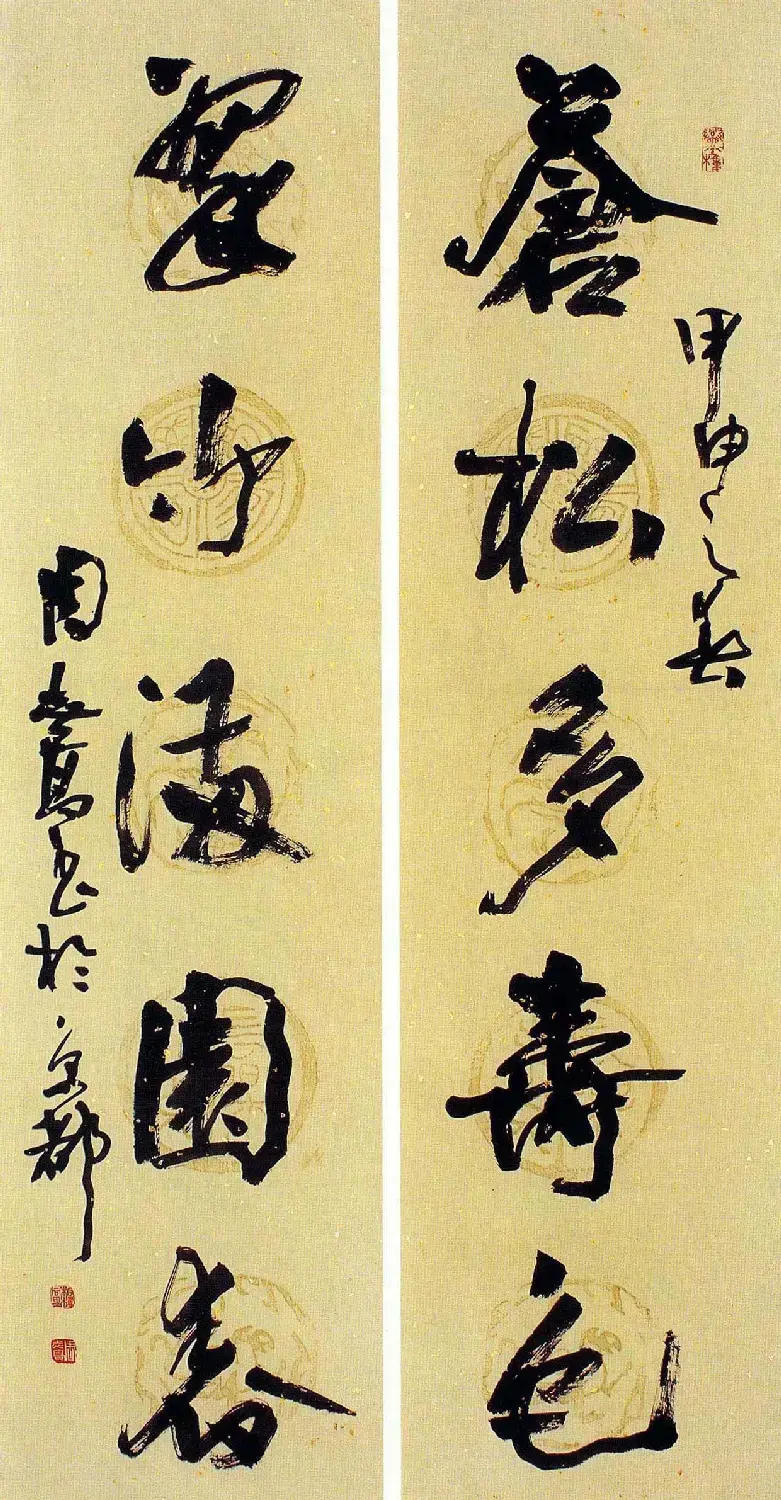 甲申之春
蒼松多壽色
翠竹滿園春
周書於京都